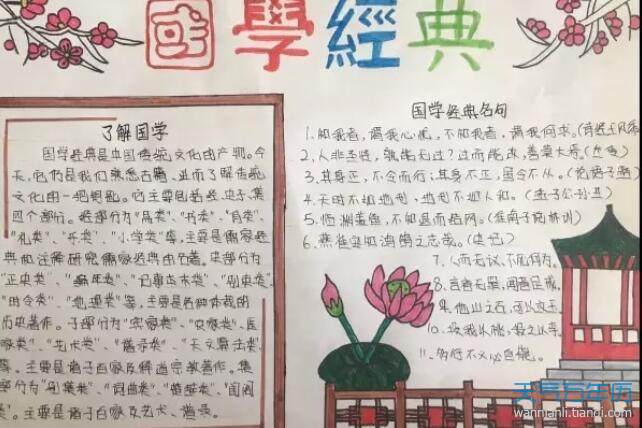 國學經典
了解国学
国学经典是中国传统文化的产物。今
天，它们是我们熟悉古籍、进而了解传统
文化的一把钥匙。它主要包括经、史、子、集
四个部分。经部分为"易类"、"书类"、"
"礼类"、"乐类"、"小学类"等，主要是儒家经
典和注释研究儒家经典的名著。史部分为
"正史类"、"编年类"、"纪事本末类"、"别史类"、
"时令类"、"地理类"等，主要是各种体裁的
历史著作。子部分为"儒家类"、"农家类"、医
家类"、"艺术类"、"谱录类"、"天文算法类"、
等。主要是诸子百家及释道宗教著作。集
部分为"别集类"、"词曲类"、"楚辞类"、
主要是诸子百家及艺术、谱录。
国学经典名句
1、知我者，谓我心忧，不知我者，谓我何求。(诗经王风
2、人非圣贤，孰能无过？过而能改，善莫大焉。
3、其身正，不令而行；其身不正，虽令不从。
4、天时不如地利，地利不如人和。(孟子公孙丑)
5、临渊羡鱼，不如退而结网。(淮南子说林训)
6、燕雀安知鸿鹄之志哉。(史记)
7、人而无仪，不死何为。
8、言者无罪，闻者足戒。
9、他山之石，可以攻玉。
10、投我以桃，报之以李。
11、多行不义必自毙。
天气万年历
wannianli.tianqi.com